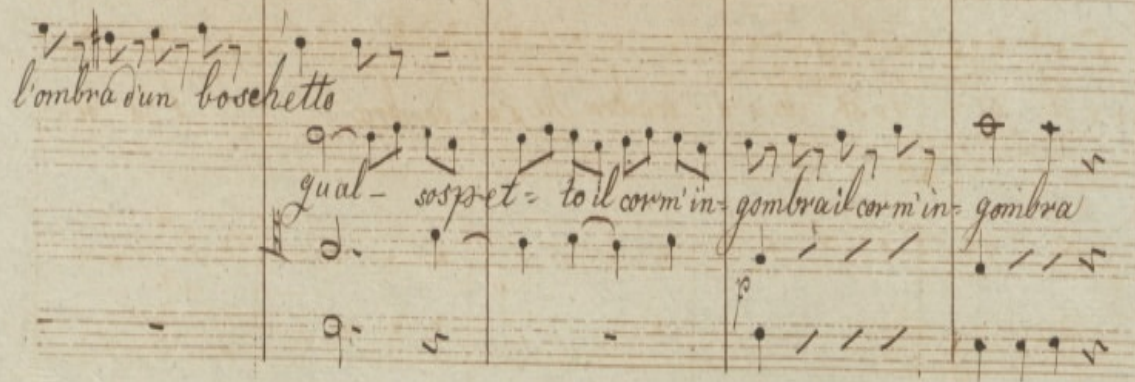 l'ombra d'un boschetto
qual- sospet= to il cor m'in= gombra il cor m'in= gombra
p